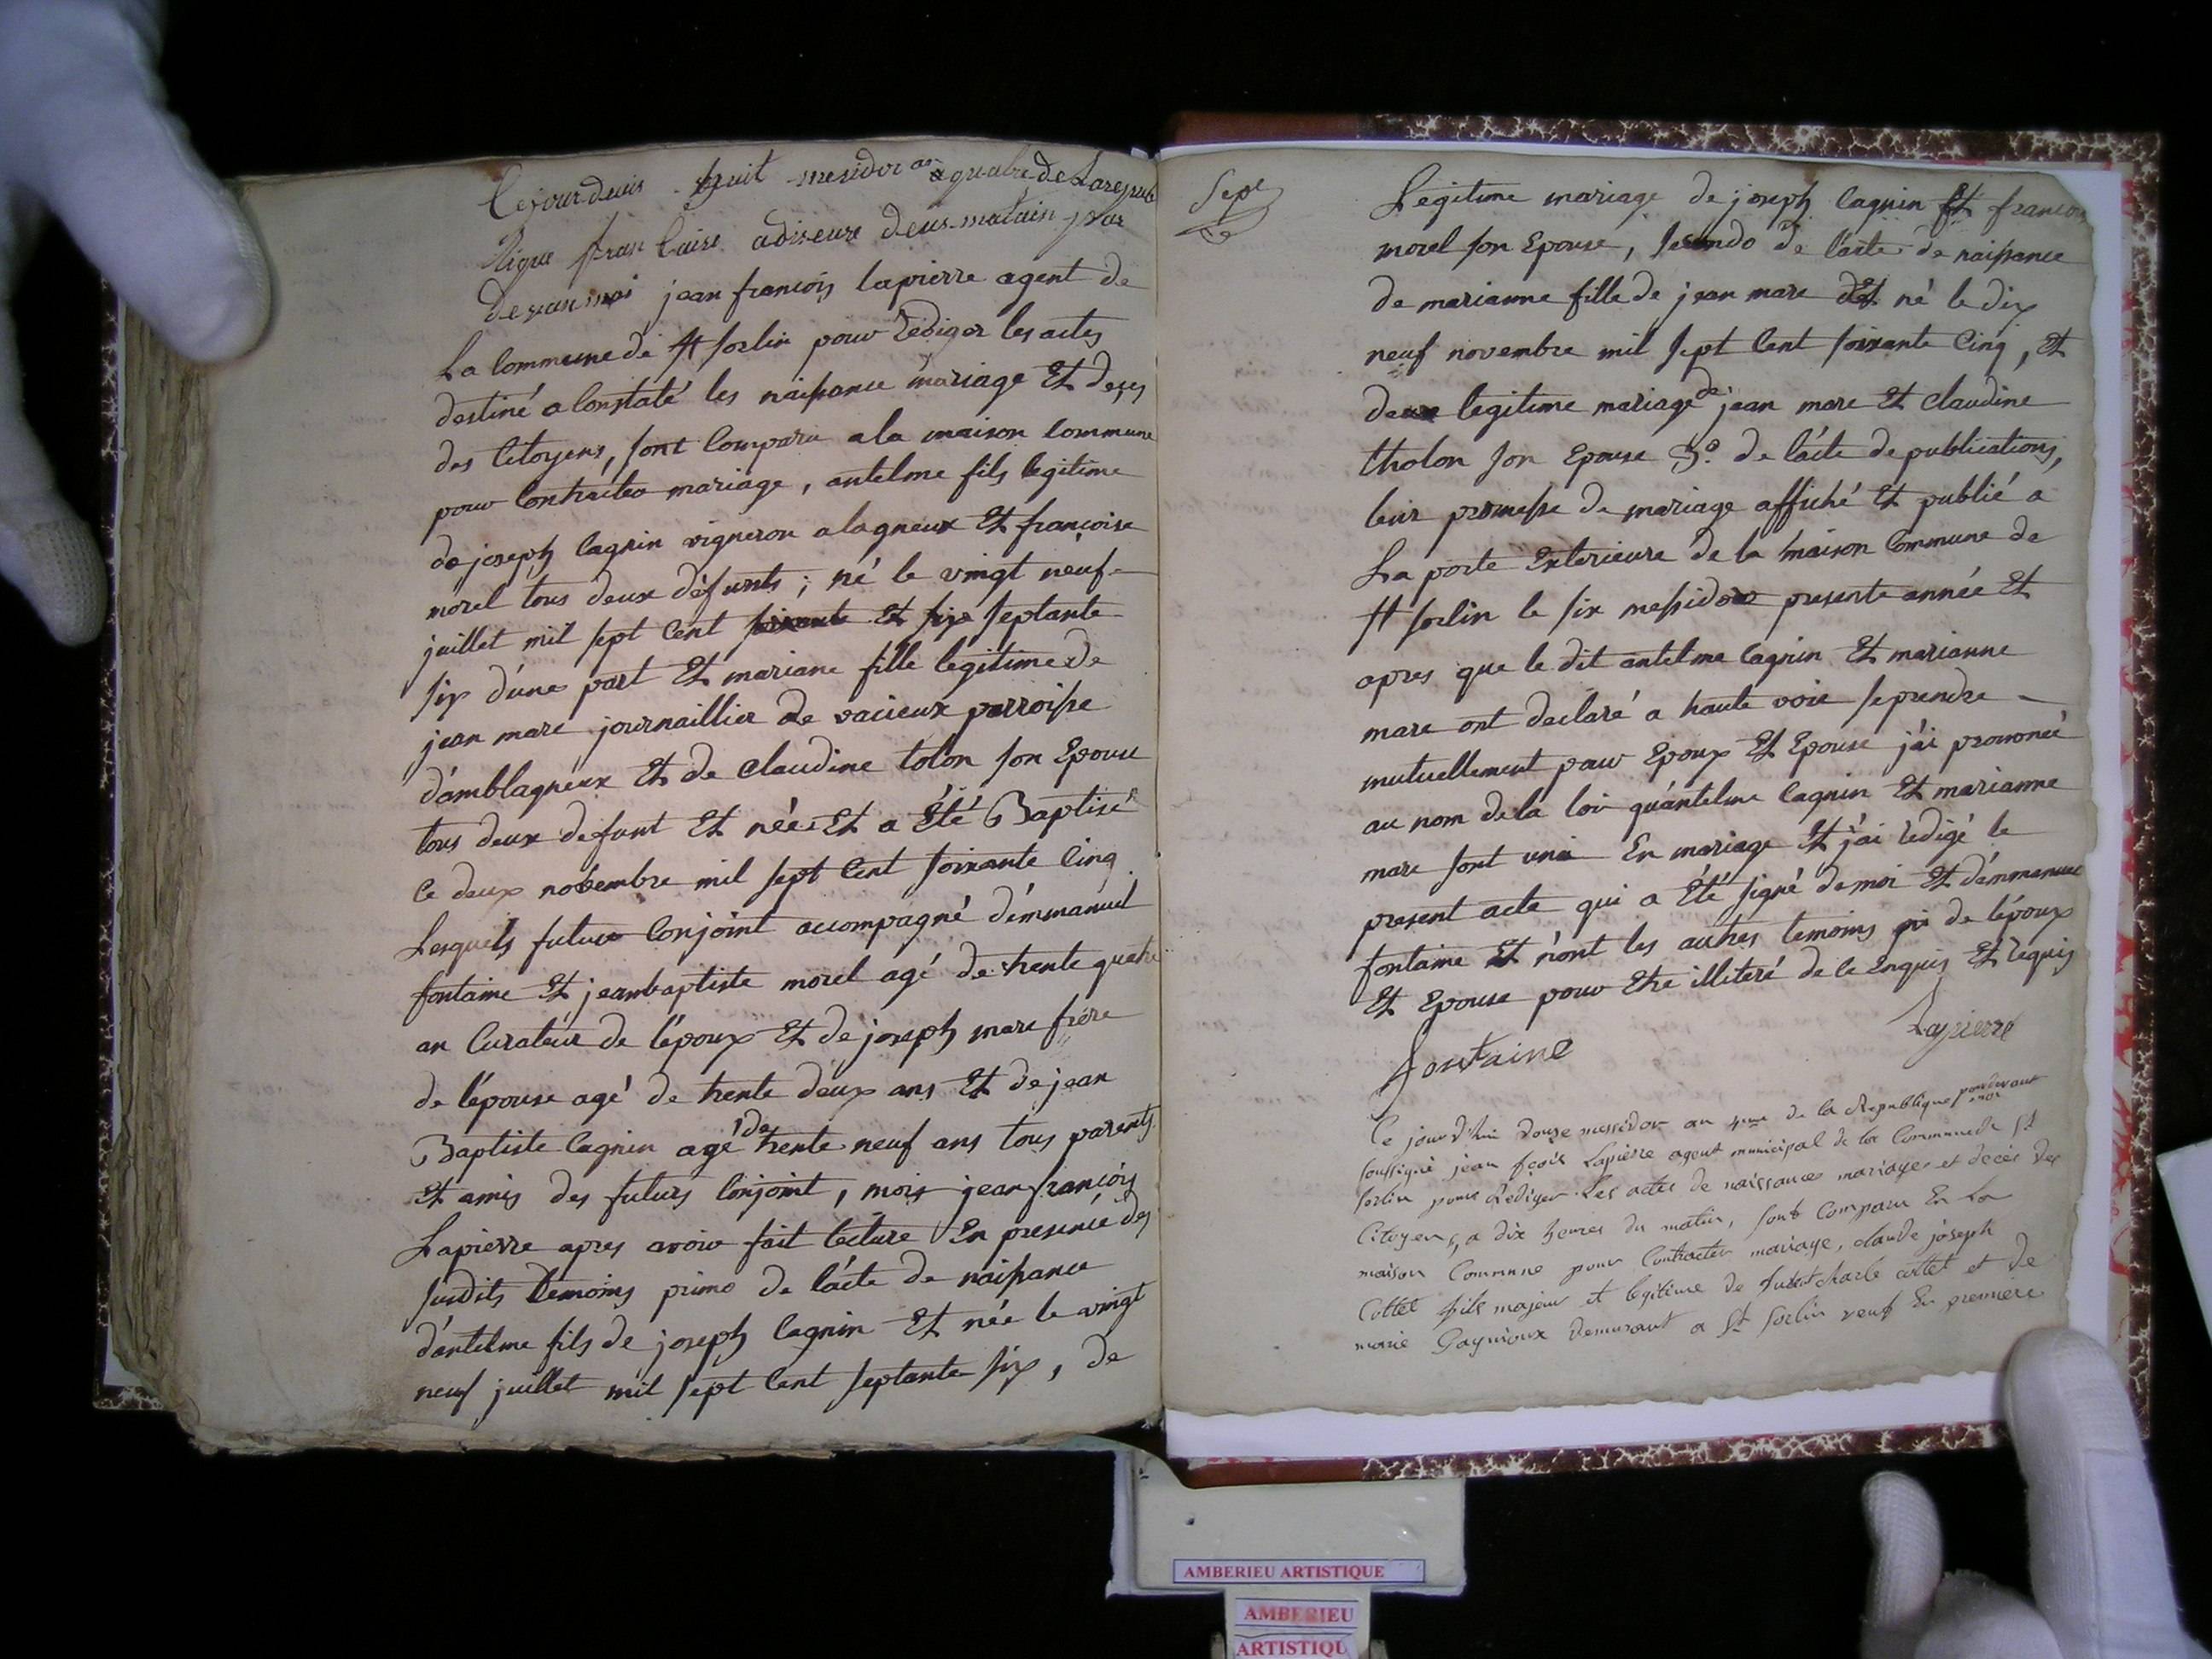 Cejourduis huit mesidor an quatre de La repub
lique francaise adiseure deus matain par
devan moi jean françois lapierre agent de
La Commune de St sorlin pour rediger les actes
destiné a Constaté les naissance mariage Et deçes
des Citoyens, sont Comparu a la maison Commune
pour Contracter mariage, antelme fils legitime
de joseph Cagnin vigneron a lagneux Et françoise
morel tous deux défunts; né le vingt neuf
juillet mil sept Cent soixante Et six septante
six d'une part Et mariane fille legitime de
jean mare journaillier de vacieux parroisse
d'amblagneux Et de Claudine tolon son Epouse
tous deux defunt Et née Et a Été Baptisé
le deux novembre mil sept Cent soixante Cinq
Lesquels future Conjoint accompagné d'emmanuel
fontaine Et jeanbaptiste morel agé de trente quatre
an Curateur de l'époux Et de joseph mare frére
de l'épouse agé de trente deux ans Et de jean
Baptiste Cagnin agé de trente neuf ans tous parents
Et amis des futurs Conjoint, mois jean françois
Lapierre apres avoir fait lecture En presence des
susdits temoins primo de l'acte de naissance
d'antelme fils de joseph Cagnin Et née le vingt
neuf juillet mil sept Cent septante six, de
Sept
Legitime mariage de joseph Cagnin Et françoise
morel son Epouse, secundo de l'acte de naissance
de marianne fille de jean mare né le dix
neuf novembre mil sept Cent soixante Cinq, Et
de legitime mariage de jean mare Et Claudine
tholon son Epouse 3o. de l'acte de publications,
leur promesse de mariage affiché Et publié a
La porte Exterieure de la maison Commune de
St sorlin le six messidor presente année Et
apres que le dit antelme Cagnin Et marianne
mare ont declaré a haute voie se prendre
mutuellement pour Epoux Et Epouse j'ai prononcé
au nom de la loi qu'antelme Cagnin Et marianne
mare sont uni En mariage Et j'ai redigé le
present acte qui a Été signé de moi Et d'emmanuel
fontaine Et n'ont les autres temoins ni de l'époux
Et Epouse pour Etre illiteré de le Enquis Et requis
Lapierre
fontaine
Ce jourd'hui douze messidor an 4me de la Republique pardevant moi
soussigné jean fçois Lapierre agent municipal de la Commune de St
sorlin pour Rediger Les actes de naissance mariages et décès des
Citoyens, a dix heures du matin, sont Comparu En La
maison Commune pour Contracter mariage, claude joseph
Cottet fils majeur et legitime de charle cottet et de
marie Gagnioux demurant a St sorlin veuf En premiere
AMBERIEU ARTISTIQUE
AMBERIEU
ARTISTIQU